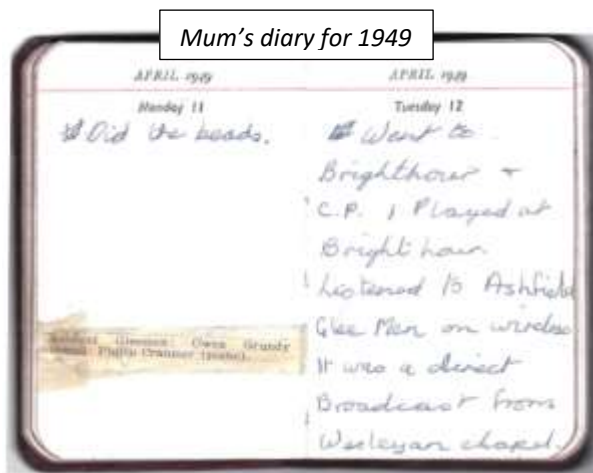 Mum's diary for 1949
APRIL 1949
Monday 11
Did the beads.
Gleemen: Owen Grundy
Philip Cranmer (piano).
APRIL 1949
Tuesday 12
Went to
Brighthour +
C.P. I Played at
Bright hour.
Listened to Ashfield
Glee Men on wireless
It was a direct
Broadcast from
Wesleyan chapel.